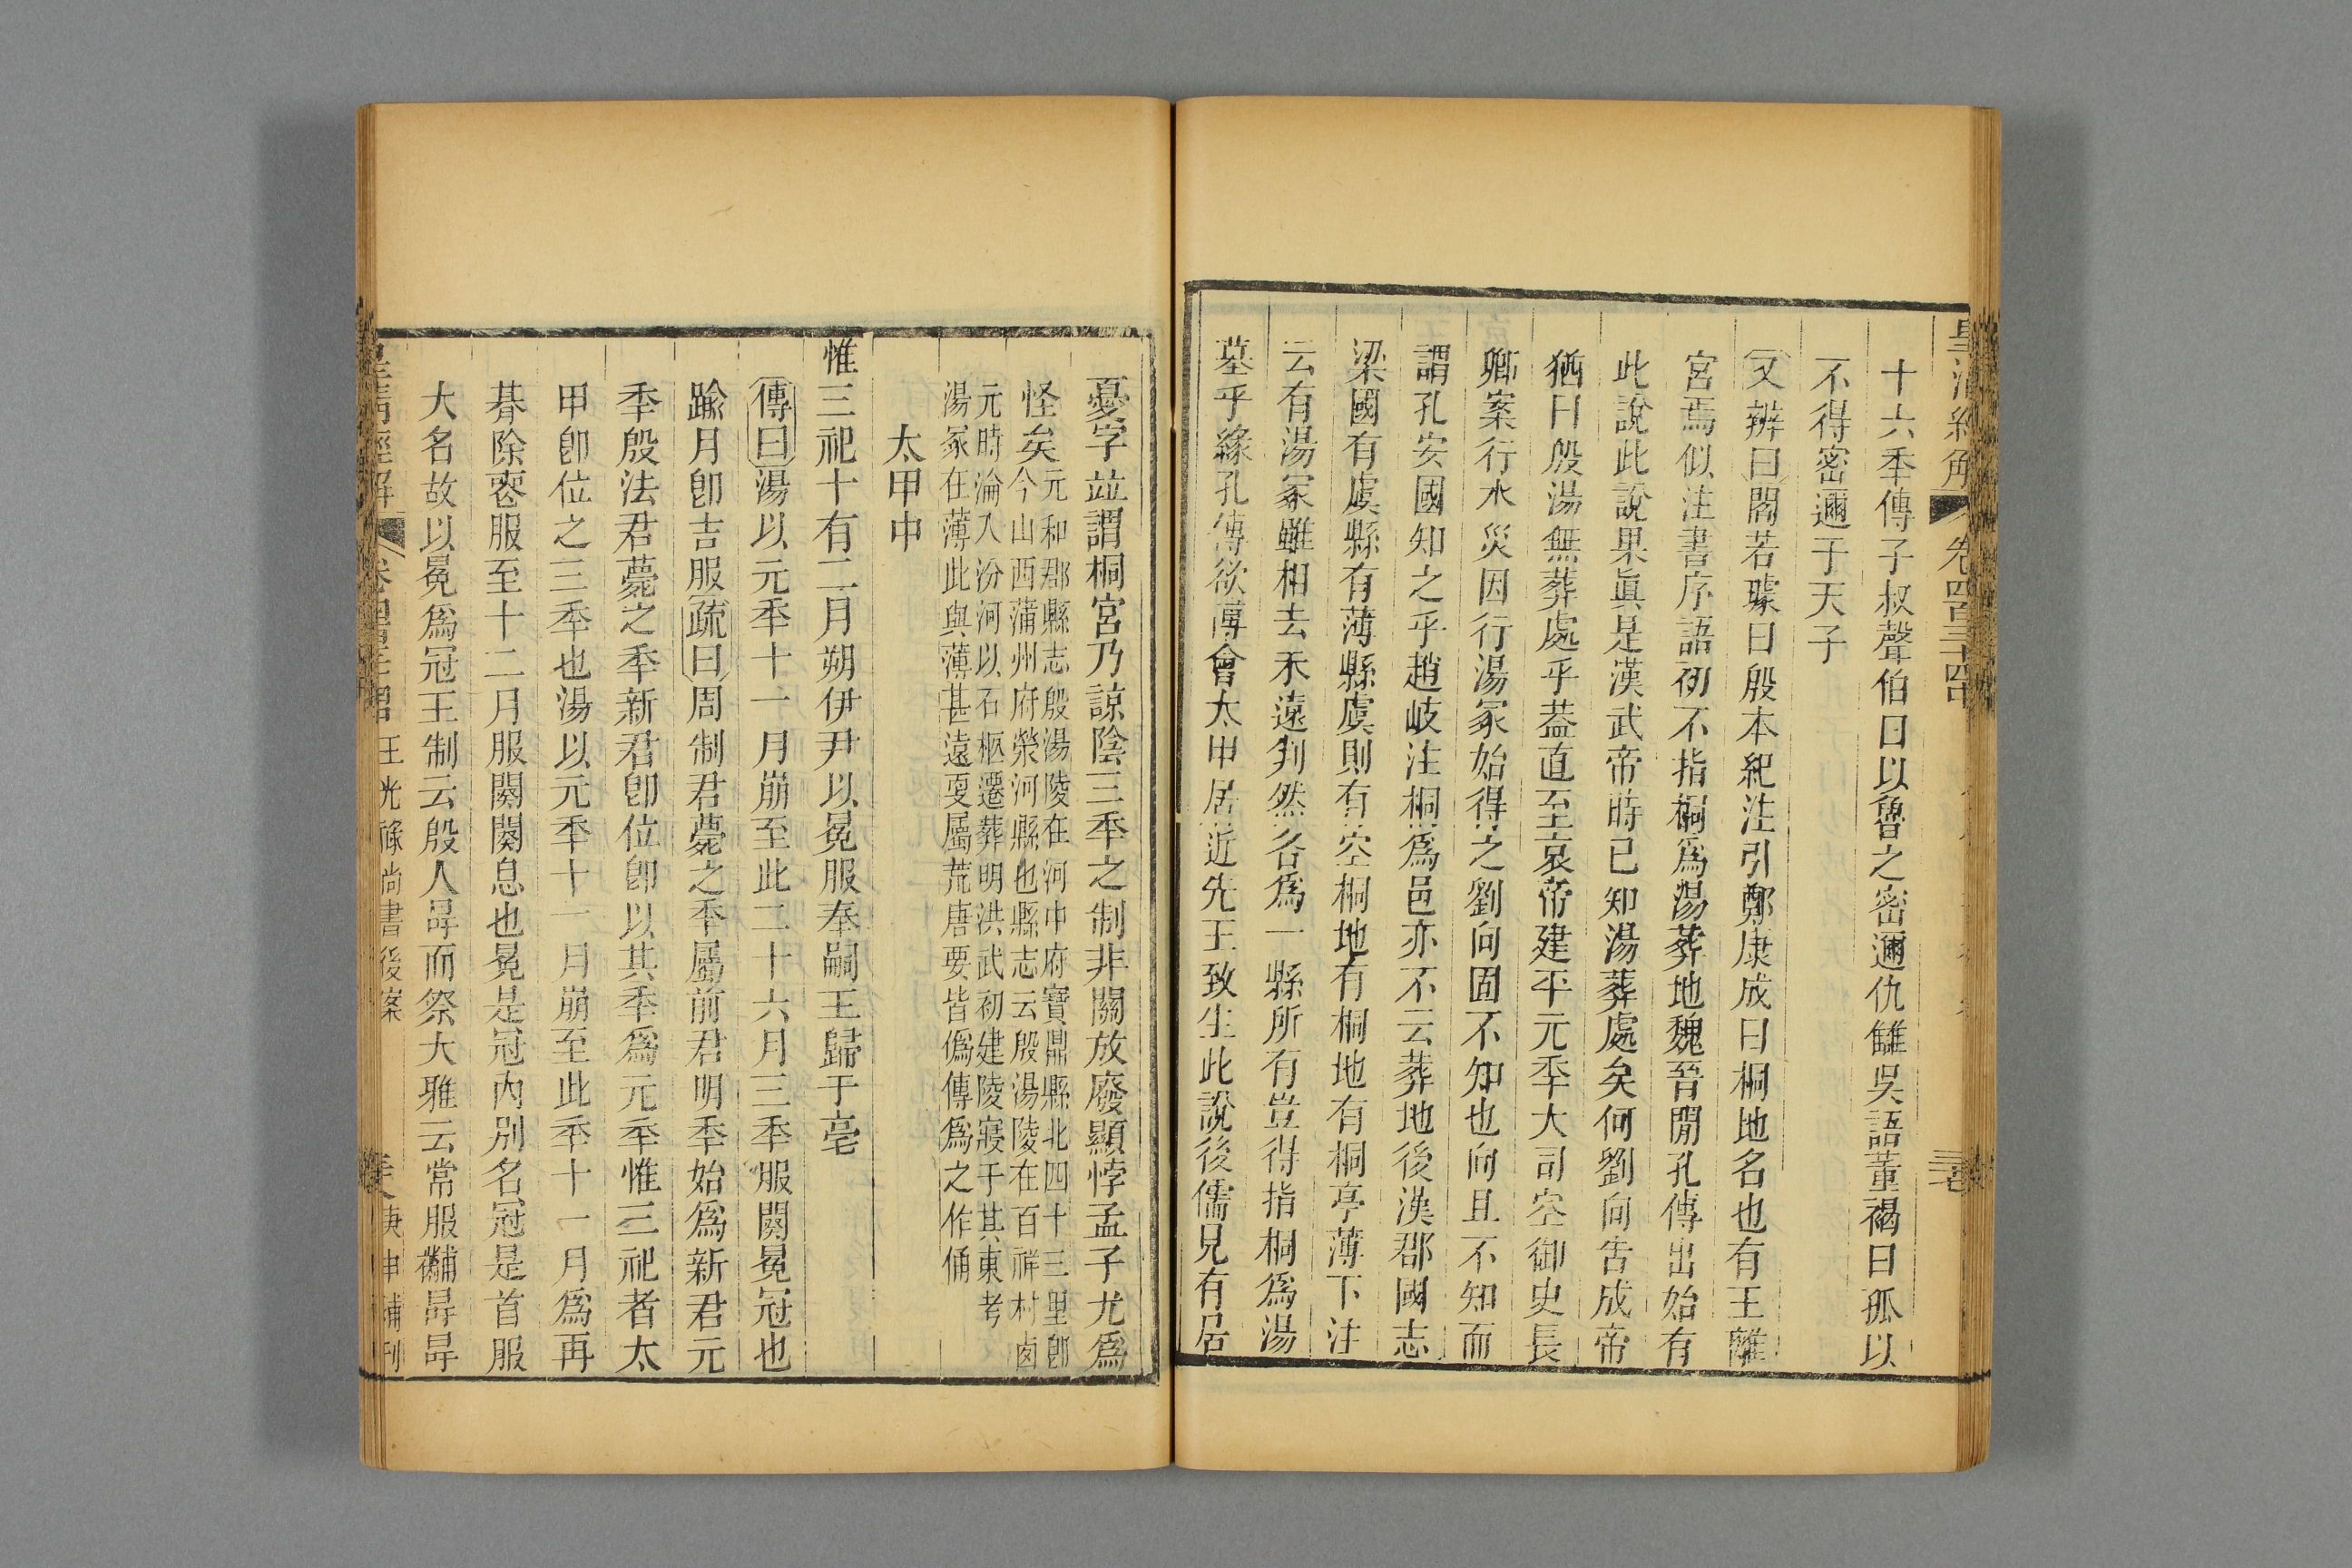 十六秊傳子叔聲伯曰以魯之密邇仇讎吳語董褐曰孤以
不得密邇于天子
又辨曰閻若璩曰殷本紀注引鄭康成曰桐地名也有王離
宮焉似注書序語初不指桐爲湯葬地魏晉閒孔傳出始有
此說此說果眞是漢武帝時已知湯葬處矣何劉向告成帝
猶曰殷湯無葬處乎葢直至哀帝建平元秊大司空御史長
卿案行水災因行湯冢始得之劉向固不知也向且不知而
謂孔安國知之乎趙岐注桐爲邑亦不云葬地後漢郡國志
梁國有虞縣有薄縣虞則有空桐地有桐地有桐亭薄下注
云有湯冢雖相去不遠判然各爲一縣所有豈得指桐爲湯
墓乎緣孔傳欲傅會太甲居近先王致生此說後儒見有居
憂字竝謂桐宮乃諒陰三秊之制非關放廢顯悖孟子尤爲
怪矣元和郡縣志殷湯陵在河中府寶鼎縣北四十三里卽
今山西蒲州府榮河縣也縣志云殷湯陵在百祥村卤
元時淪入汾河以石柩遷葬明洪武初建陵寢于其東考
湯冢在薄此與薄甚遠㪅屬荒唐要皆僞傳爲之作俑
太甲中
惟三祀十有二月朔伊尹以冕服奉嗣王歸于亳
傳曰湯以元秊十一月崩至此二十六月三秊服闋冕冠也
踰月卽吉服疏曰周制君薨之秊屬前君明秊始爲新君元
秊殷法君薨之秊新君卽位卽以其秊爲元秊惟三祀者太
甲卽位之三秊也湯以元秊十一月崩至此秊十一月爲再
朞除喪服至十二月服闋闋息也冕是冠內別名冠是首服
大名故以冕爲冠王制云殷人冔而祭大雅云常服黼冔冔
皇清經解
王光祿尚書後案
庚申補刊